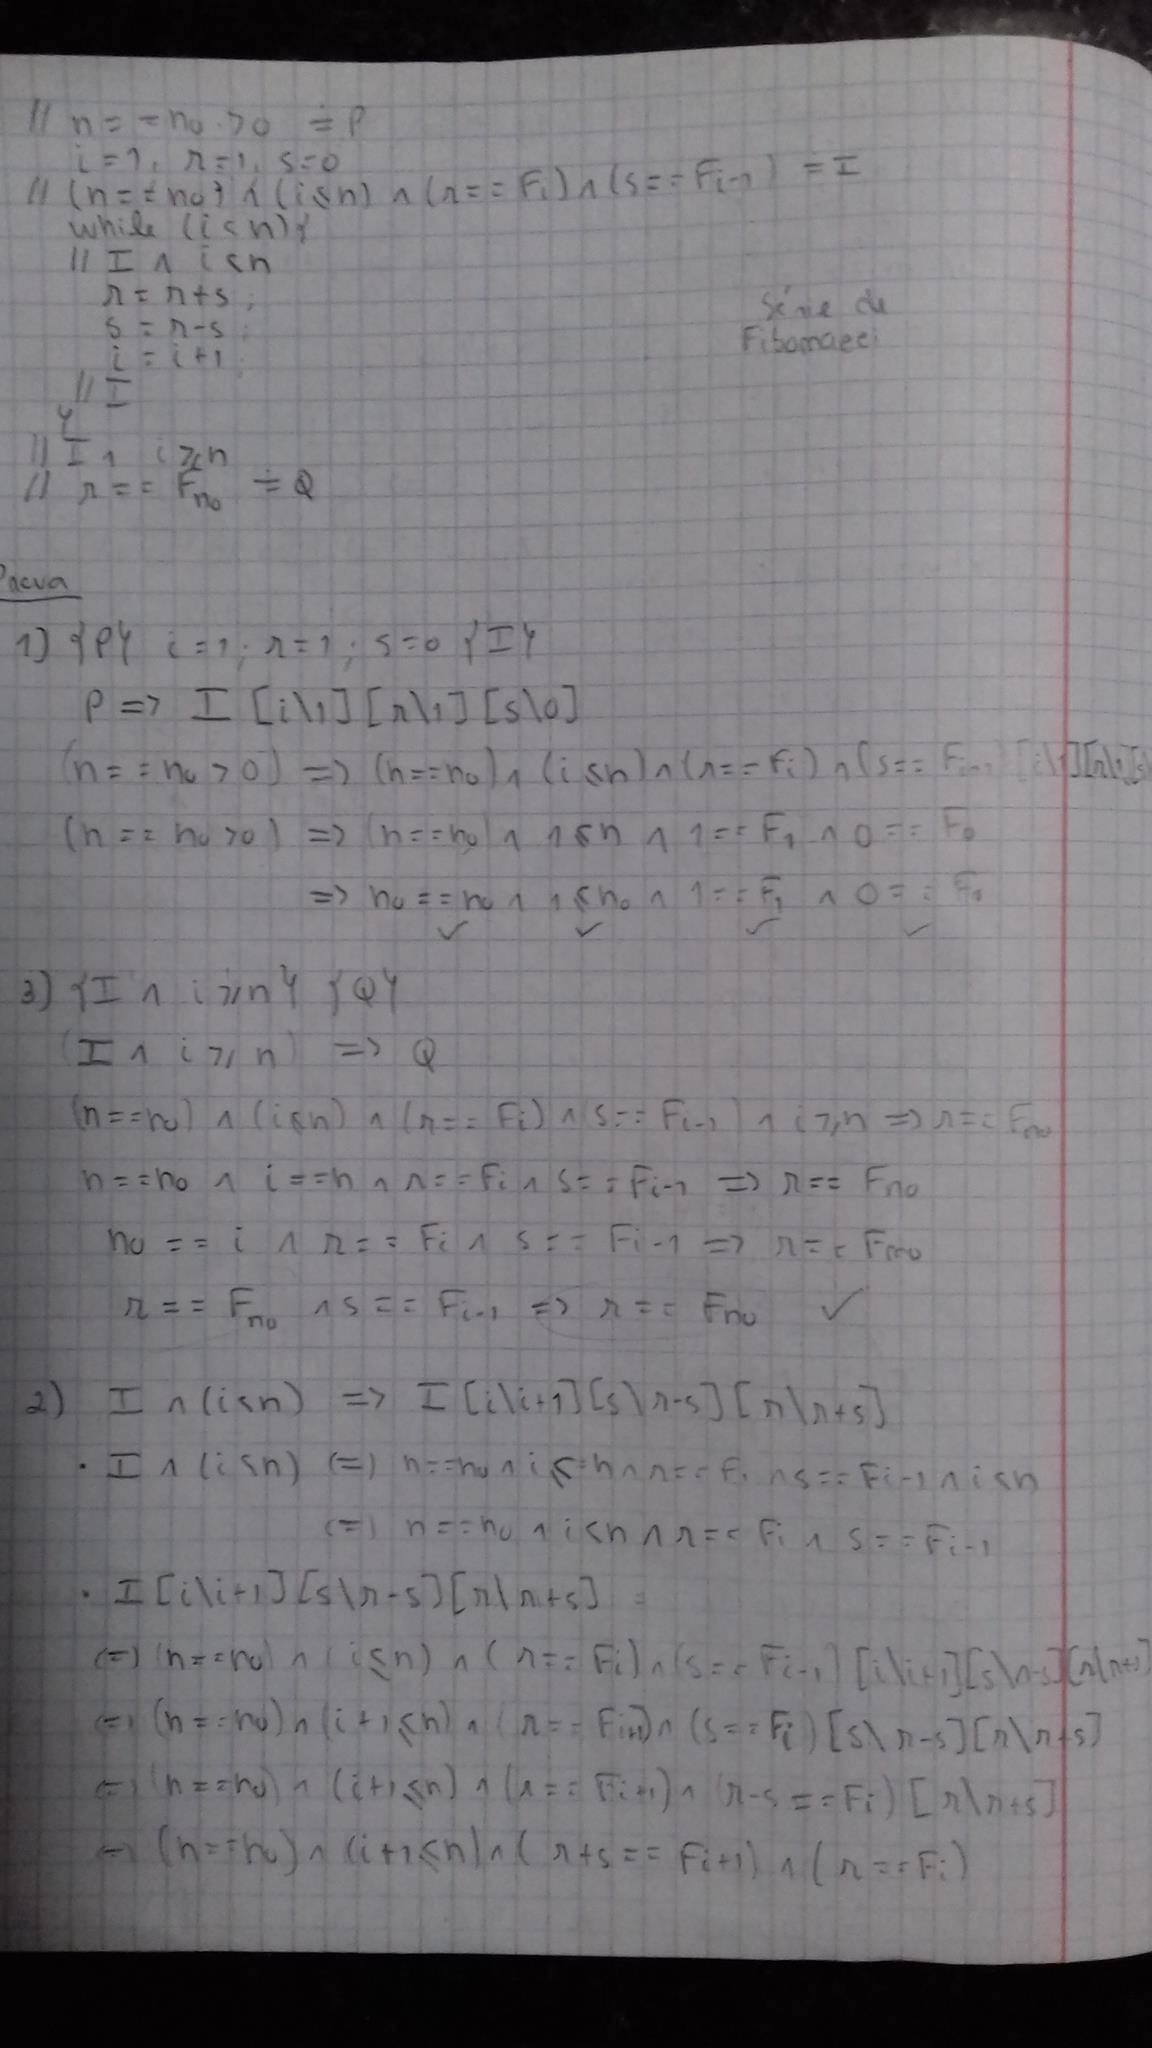 // n == n₀ > 0 ≐ P
i = 1; r = 1; s = 0
// (n == n₀) ∧ (i ≤ n) ∧ (r == Fi) ∧ (s == Fi-1) ≐ I
while (i < n){
// I ∧ i < n
r = r + s;
s = r - s;
i = i + 1;
// I
}
// I ∧ i ≥ n
// r == Fn₀ ≐ Q
Série de
Fibonacci
Prova
1) {P} i = 1; r = 1; s = 0 {I}
P => I [i\1][r\1][s\0]
(n == n₀ > 0) => (n == n₀) ∧ (i ≤ n) ∧ (r == Fi) ∧ (s == Fi-1) [i\1][r\1][s
(n == n₀ > 0) => (n == n₀) ∧ 1 ≤ n ∧ 1 == F1 ∧ 0 == F0
=> n₀ == n₀ ∧ 1 ≤ n₀ ∧ 1 == F1 ∧ 0 == F0
✓ ✓ ✓ ✓
3) {I ∧ i ≥ n} {Q}
(I ∧ i ≥ n) => Q
(n == n₀) ∧ (i ≤ n) ∧ (r == Fi) ∧ (s == Fi-1) ∧ i ≥ n => r == Fn₀
n == n₀ ∧ i == n ∧ r == Fi ∧ s == Fi-1 => r == Fn₀
n₀ == i ∧ r == Fi ∧ s == Fi-1 => r == Fn₀
r == Fn₀ ∧ s == Fi-1 => r == Fn₀ ✓
2) I ∧ (i < n) => I [i\i+1][s\r-s][r\r+s]
• I ∧ (i < n) (=) n == n₀ ∧ i ≤ n ∧ r == Fi ∧ s == Fi-1 ∧ i < n
(=) n == n₀ ∧ i < n ∧ r == Fi ∧ s == Fi-1
• I [i\i+1][s\r-s][r\r+s] =
(=) (n == n₀) ∧ (i ≤ n) ∧ (r == Fi) ∧ (s == Fi-1) [i\i+1][s\r-s][r\r+s]
(=) (n == n₀) ∧ (i+1 ≤ n) ∧ (r == Fi+1) ∧ (s == Fi) [s\r-s][r\r+s]
(=) (n == n₀) ∧ (i+1 ≤ n) ∧ (r == Fi+1) ∧ (r-s == Fi) [r\r+s]
(=) (n == n₀) ∧ (i+1 ≤ n) ∧ (r+s == Fi+1) ∧ (r == Fi)